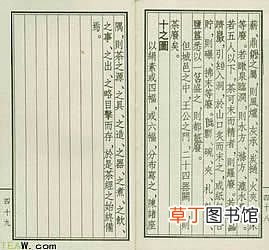 薪、鼎䥶之屬，則風爐、灰承、炭檛、火夾、
等廢。若瞰泉臨澗，則水方、滌方、漉水
若五人以下，茶可末而精者，則羅廢。
躋嵒，引絙入洞，於山口炙而末之，或紙包
貯，則碾、拂末等廢。既瓢、碗、夾、札、
鹽簋悉以一筥盛之，則都籃廢。
但城邑之中，王公之門，二十四器闕
茶廢矣。
十之圖
以絹素或四幅，或六幅，分布寫之，陳諸座
隅，則茶之源、之具、之造、之器、之煮、之飲、
之事、之出、之略目擊而存，於是茶經之始終備
焉。
四十九
TEAW.com